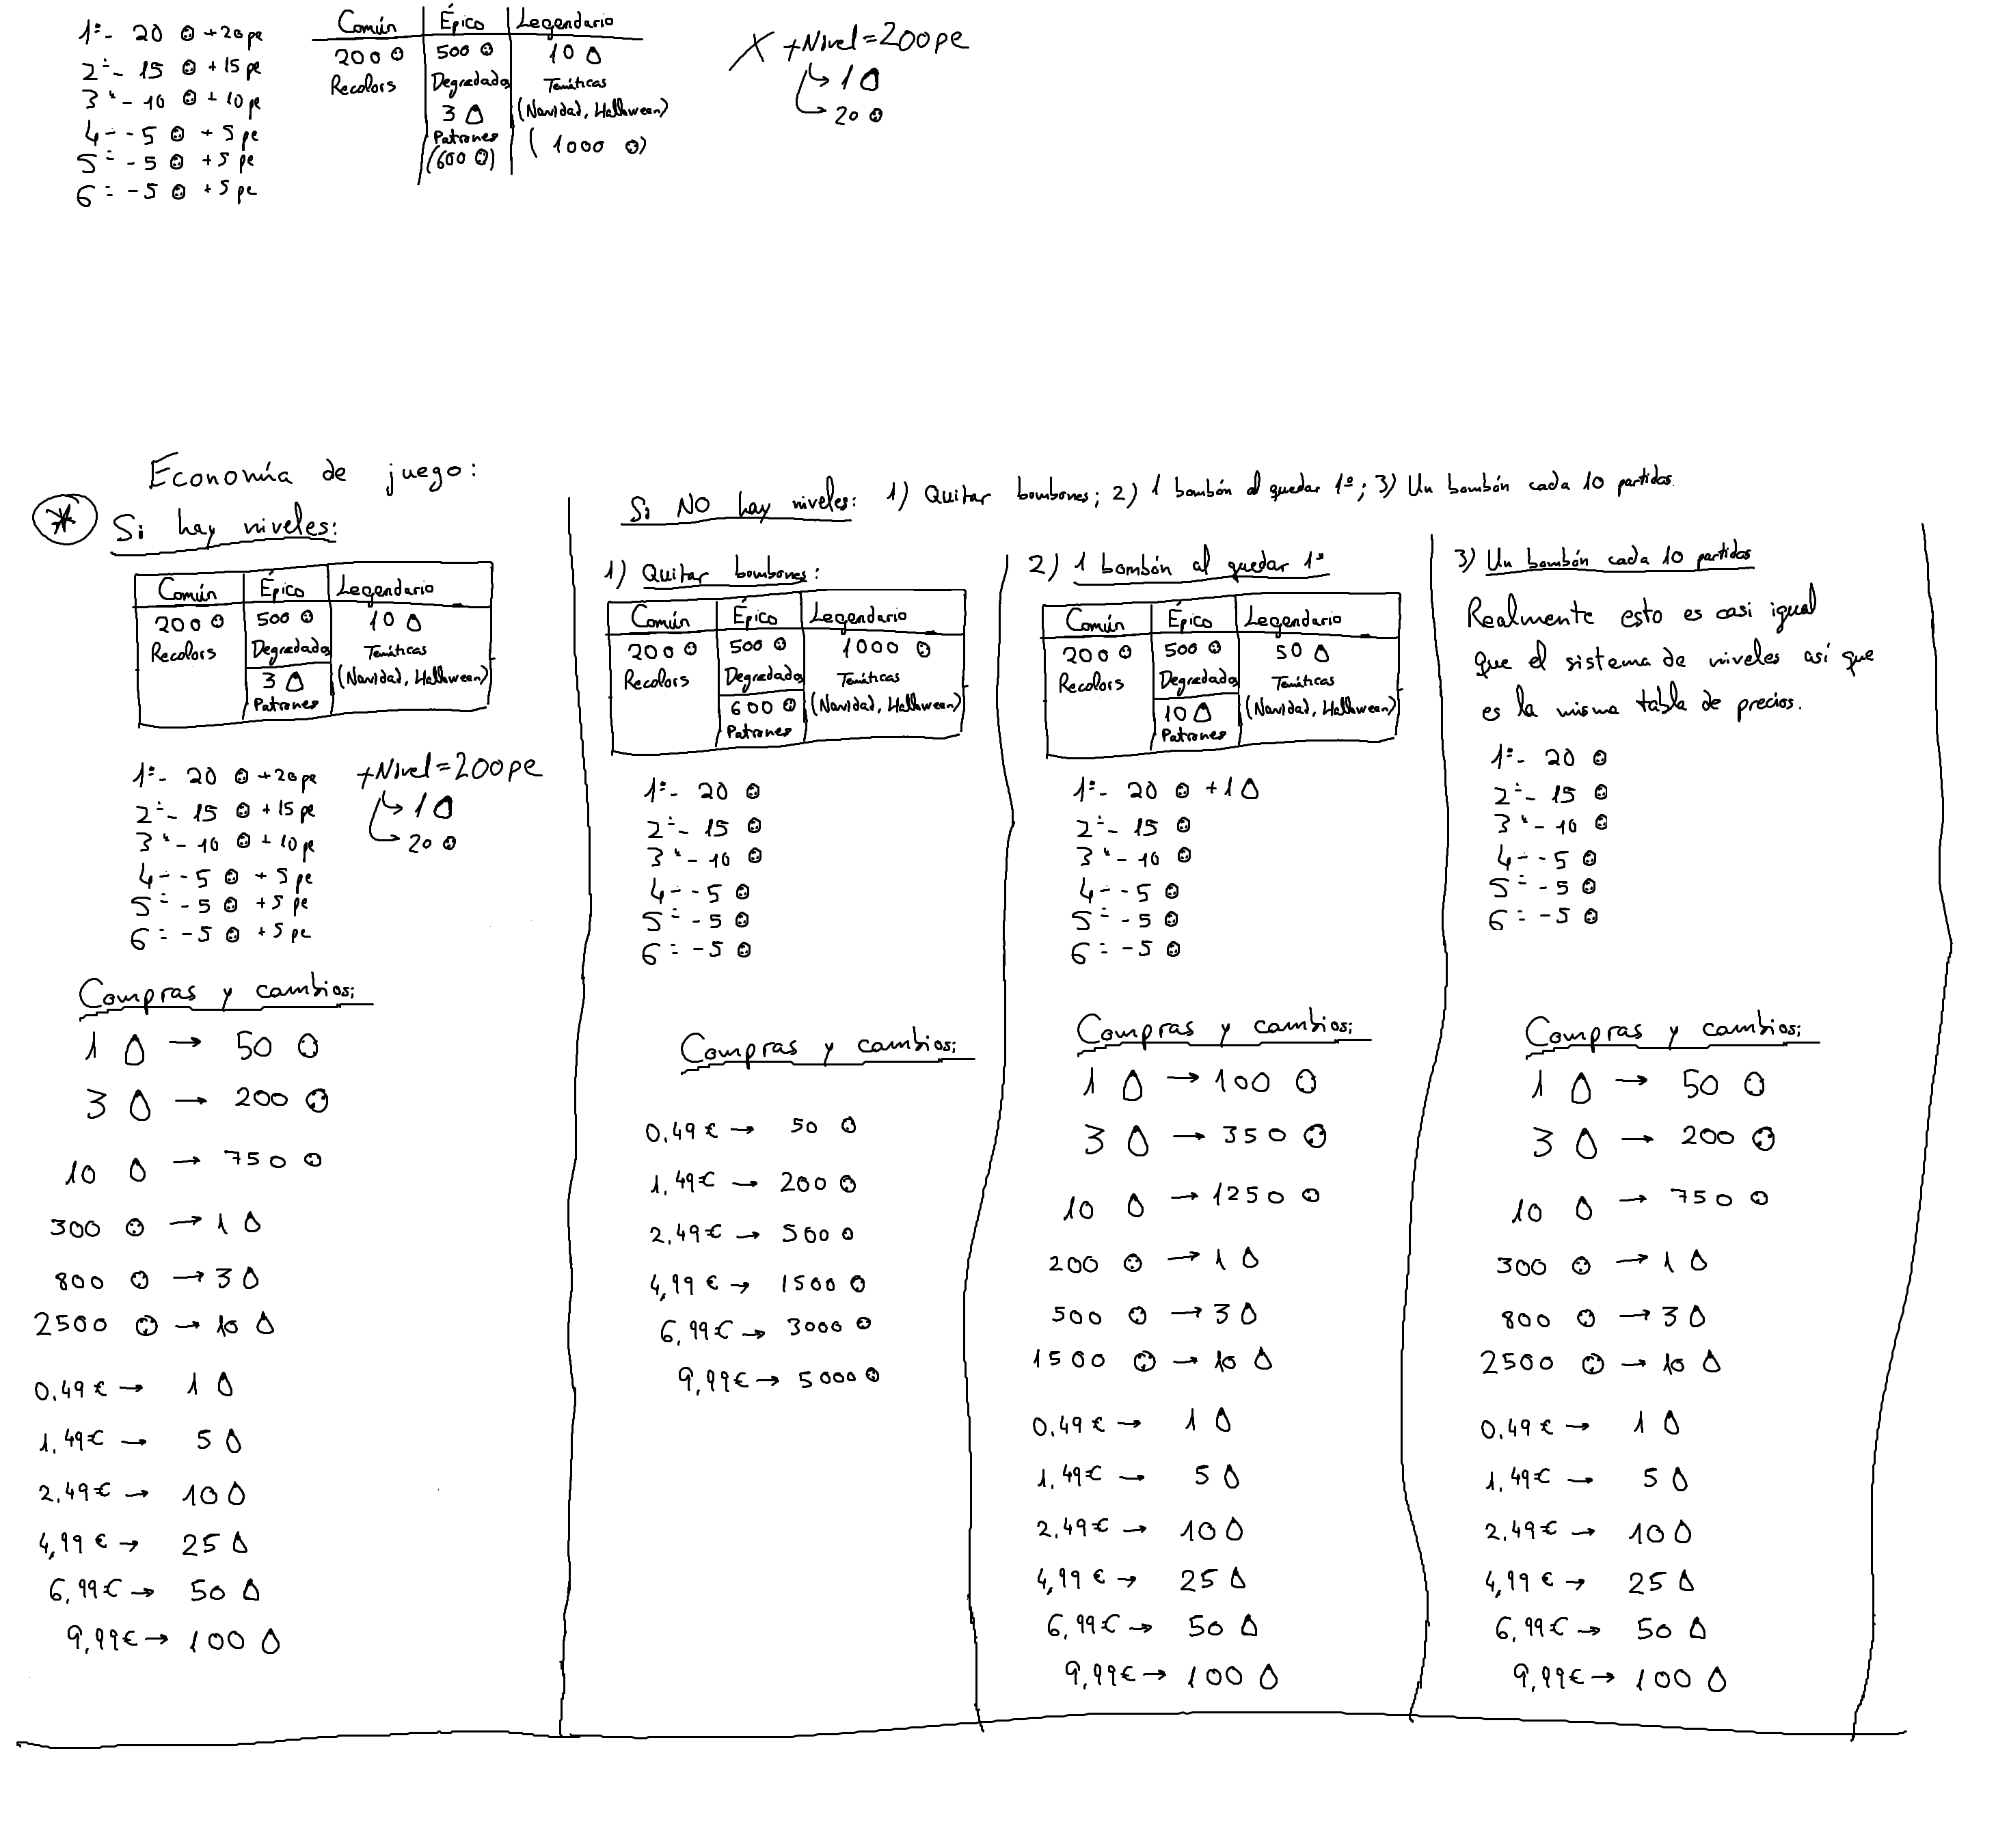 1º- 20 +20pe
2º- 15 +15 pe
3º- 10 + 10 pe
4º- 5 + 5 pe
5º- 5 + 5 pe
6º- 5 + 5 pe
Común Épico Legendario
200 500 10
Recolors Degradados Temáticas
3 (Navidad, Hallween)
Patrones
(600) (1000)
X +Nivel=200pe
1
20
Economía de juego:
* Si hay niveles:
Común Épico Legendario
200 500 10
Recolors Degradados Temáticas
3 (Navidad, Hallween)
Patrones
1º- 20 +20pe
2º- 15 + 15 pe
3º- 10 + 10 pe
4º- 5 + 5 pe
5º- 5 + 5 pe
6º- 5 + 5 pe
+Nivel=200pe
1
20
Compras y cambios:
1 → 50
3 → 200
10 → 750
300 → 1
800 → 3
2500 → 10
0,49€ → 1
1,49€ → 5
2,49€ → 10
4,99€ → 25
6,99€ → 50
9,99€ → 100
Si NO hay niveles: 1) Quitar bombones; 2) 1 bombón al quedar 1º; 3) Un bombón cada 10 partidas.
1) Quitar bombones:
Común Épico Legendario
200 500 1000
Recolors Degradados Temáticas
600 (Navidad, Hallween)
Patrones
1º- 20
2º- 15
3º- 10
4º- 5
5º- 5
6º- 5
Compras y cambios:
0,49€ → 50
1,49€ → 200
2,49€ → 500
4,99€ → 1500
6,99€ → 3000
9,99€ → 5000
2) 1 bombón al quedar 1º
Común Épico Legendario
200 500 50
Recolors Degradados Temáticas
10 (Navidad, Hallween)
Patrones
1º- 20 +1
2º- 15
3º- 10
4º- 5
5º- 5
6º- 5
Compras y cambios:
1 → 100
3 → 350
10 → 1250
200 → 1
500 → 3
1500 → 10
0,49€ → 1
1,49€ → 5
2,49€ → 10
4,99€ → 25
6,99€ → 50
9,99€ → 100
3) Un bombón cada 10 partidas
Realmente esto es casi igual
que el sistema de niveles así que
es la misma tabla de precios.
1º- 20
2º- 15
3º- 10
4º- 5
5º- 5
6º- 5
Compras y cambios:
1 → 50
3 → 200
10 → 750
300 → 1
800 → 3
2500 → 10
0,49€ → 1
1,49€ → 5
2,49€ → 10
4,99€ → 25
6,99€ → 50
9,99€ → 100